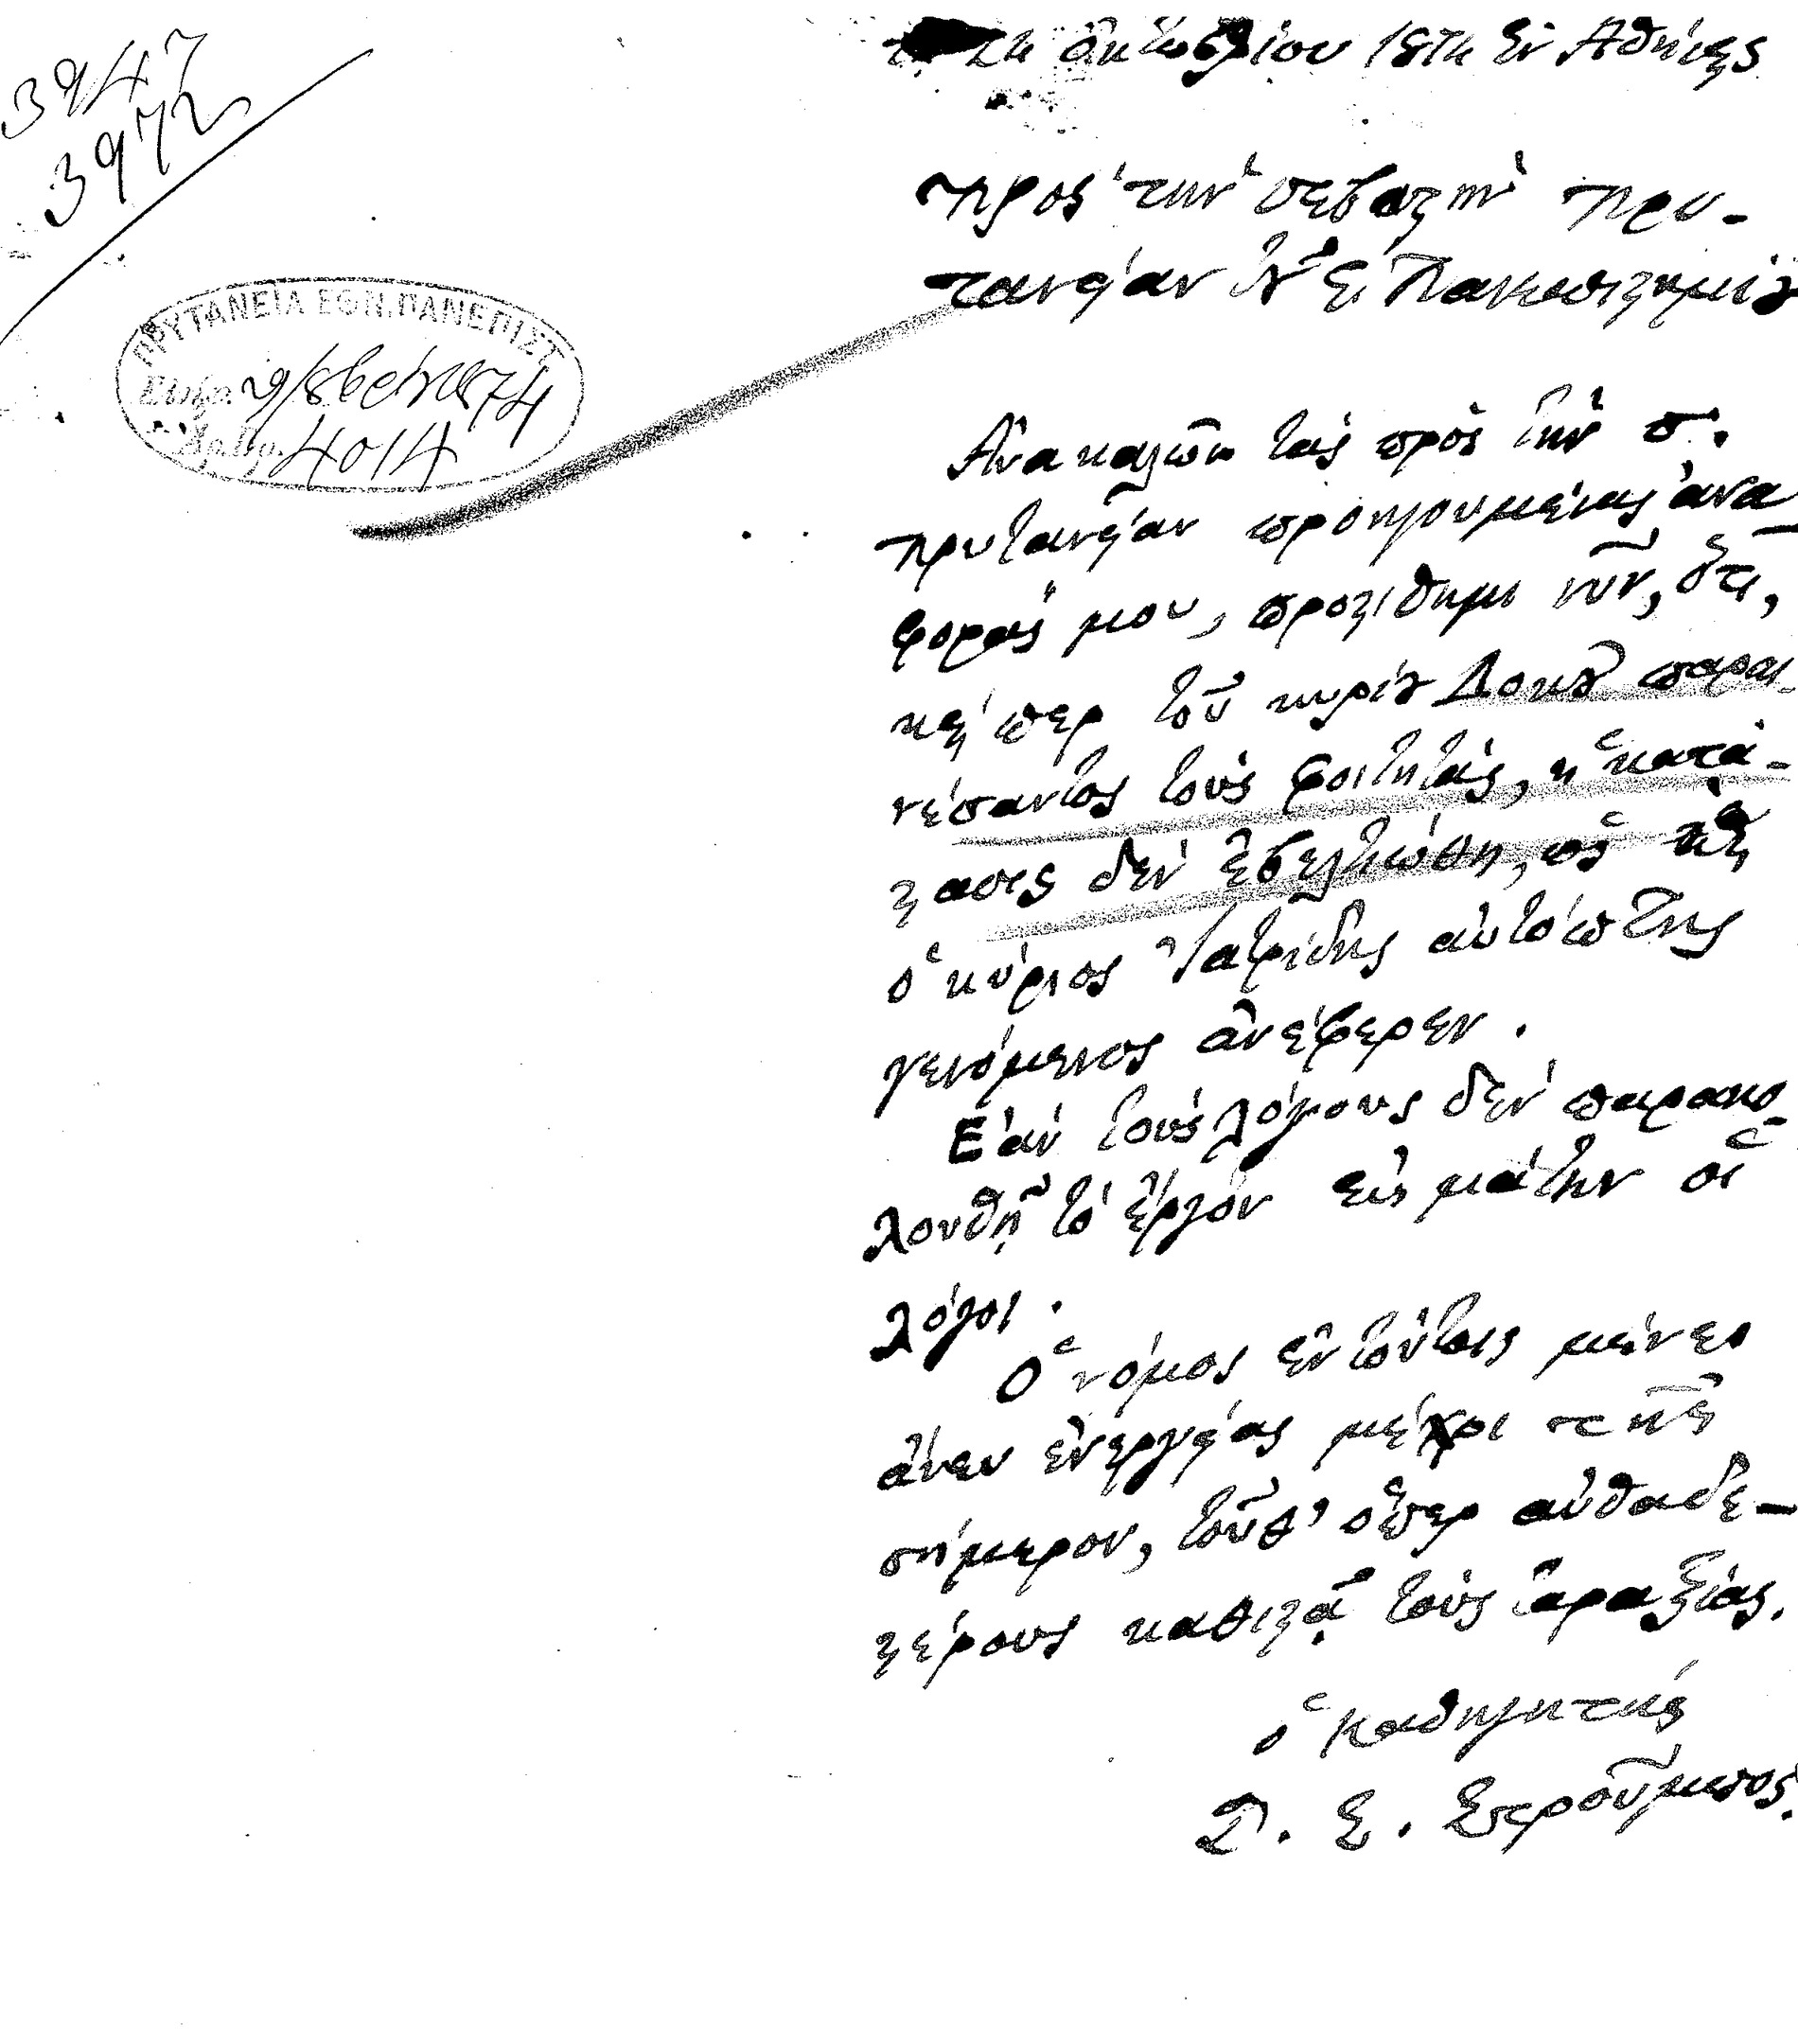 3947
3972
ΠΡΥΤΑΝΕΙΑ ΕΘΝ. ΠΑΝΕΠΙΣΤ.
4014
Ὀκτωβρίου 1874 ἐν Ἀθήναις
πρὸς τὴν σεβαστὴν πρυ-
τανείαν τοῦ Ἐ. Πανεπιστημίου
Ἀνακαλῶν τὰς πρὸς τὴν σ.
πρυτανείαν προηγουμένας ἀνα
φοράς μου, προστίθημι νῦν, ὅτι,
καίπερ τοῦ κυρίου Δοκοῦ παραι-
νέσαντος τοὺς φοιτητάς, ἡ κατά-
στασις δὲν ἐβελτιώθη, ὡς καὶ
ὁ κύριος Ἰατρίδης αὐτόπτης
γενόμενος ἀνέφερεν.
Ἐὰν τοὺς λόγους δὲν παρακο-
λουθῇ τὸ ἔργον εἰς μάτην οἱ
λόγοι.
Ὁ νόμος ἐν τούτοις μένει
ἄνευ ἐνεργείας μέχρι τῆς
σήμερον, τοῦθ' ὅπερ αὐθαδε-
στέρους καθιστᾷ τοὺς ταραξίας.
ὁ καθηγητὴς
Δ. Σ. Στροῦμπος.